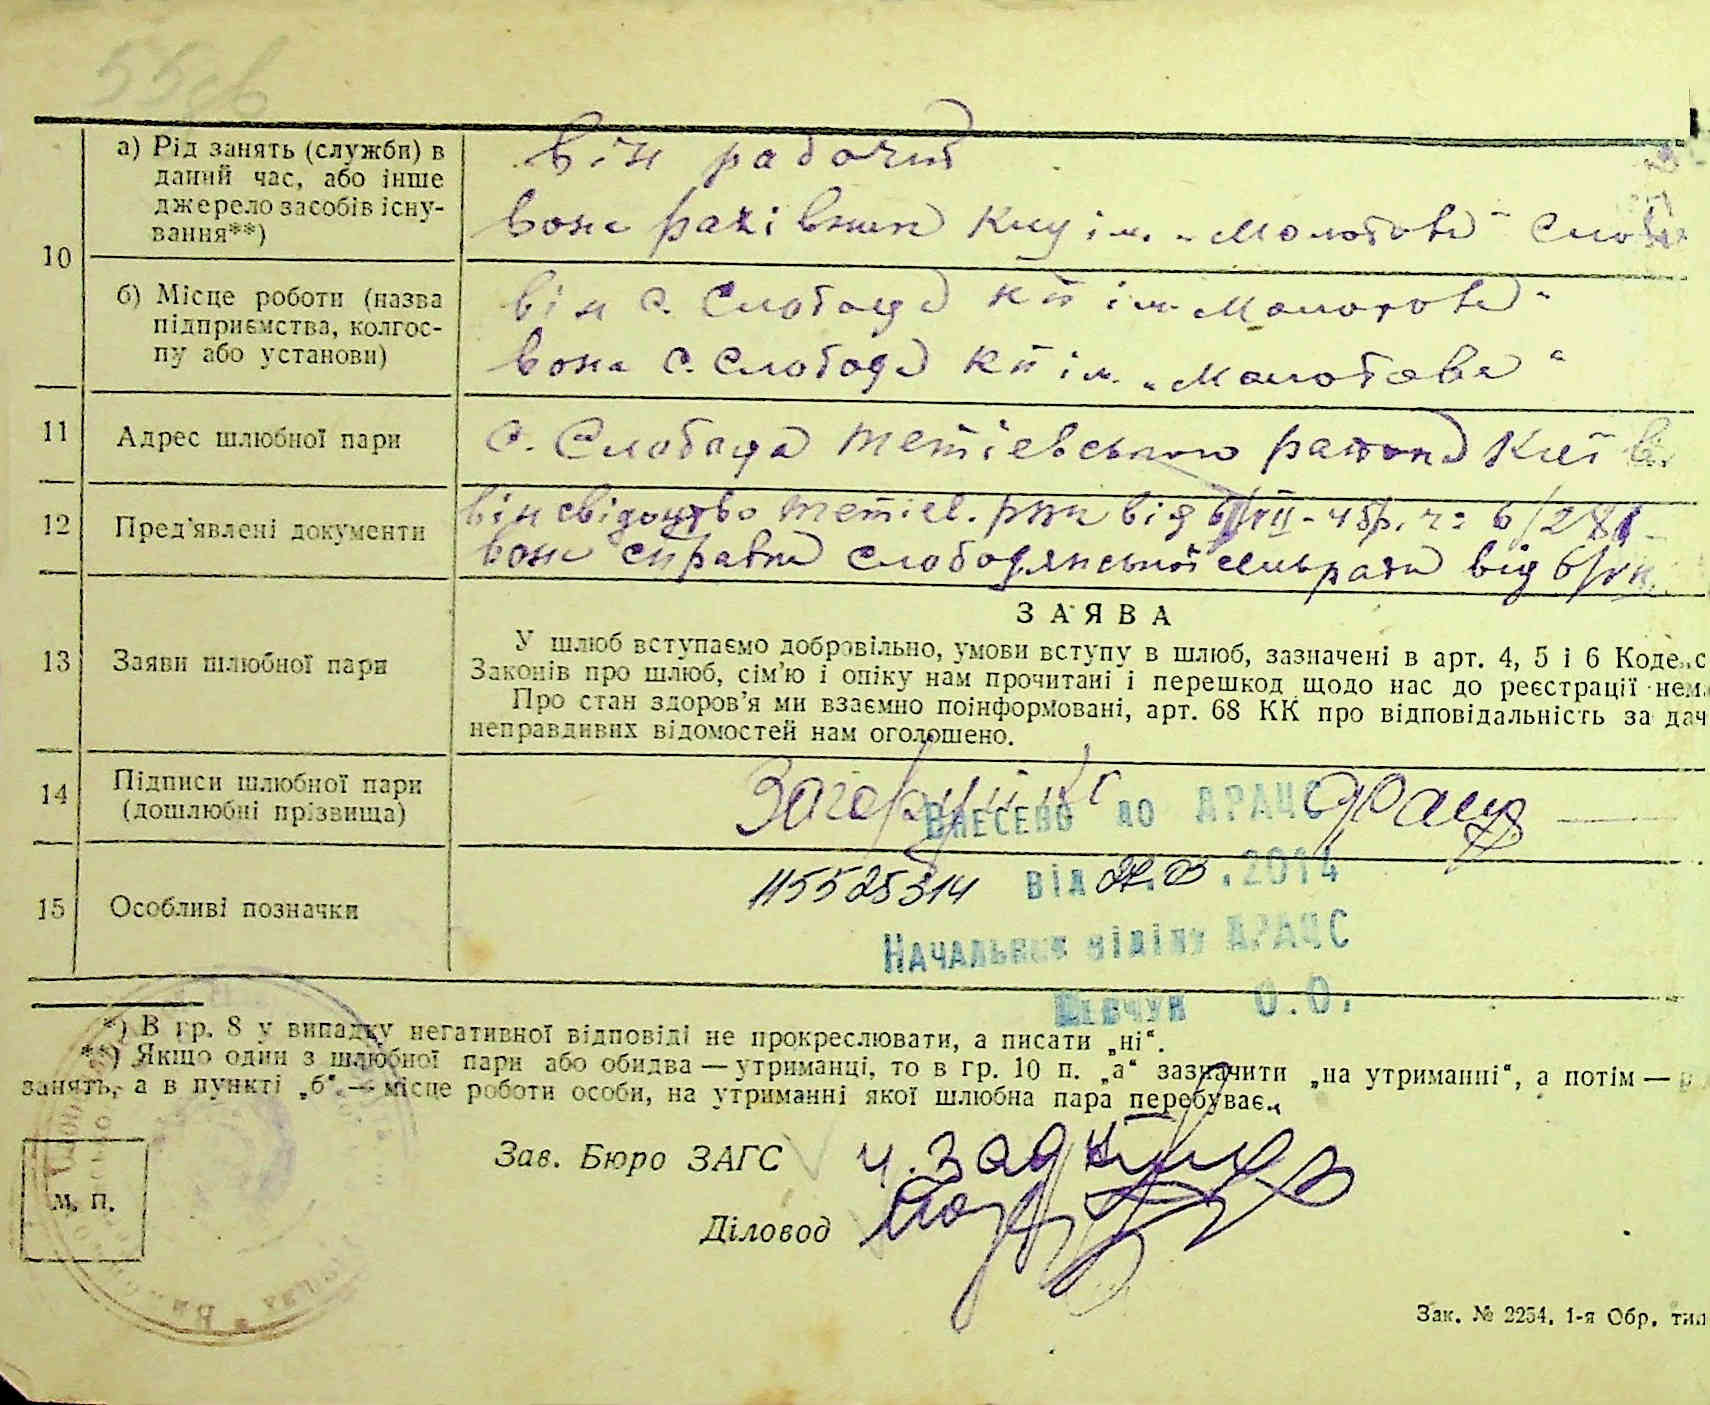 а) Рід занять (служби) в
даний час, або інше
джерело засобів існу-
вання**)
він рабочий
вона рахівник ім. „Молотова“
10
б) Місце роботи (назва
підприємства, колгос-
пу або установи)
він с. Слобода к-п ім. Молотова“
вона с. Слобода к-п ім. „Молотова“
11
Адрес шлюбної пари
с. Слобода Тетіевського района Київ
12
Пред'явлені документи
він свідоцтво Тетіев. від
вона справка Слободянської сільради від
13
Заяви шлюбної пари
ЗАЯВА
У шлюб вступаємо добровільно, умови вступу в шлюб, зазначені в арт. 4, 5 і 6 Кодекс
Законів про шлюб, сім'ю і опіку нам прочитані і перешкод щодо нас до реєстрації нема
Про стан здоров'я ми взаємно поінформовані, арт. 68 КК про відповідальність за дач
неправдивих відомостей нам оголошено.
14
Підписи шлюбної пари
(дошлюбні прізвища)
Внесено до ДРАЦС
15
Особливі позначки
від .2014
Начальник відділу ДРАЦС
Шевчук О.О.
*) В гр. 8 у випадку негативної відповіді не прокреслювати, а писати „ні“.
**) Якщо один з шлюбної пари або обидва — утриманці, то в гр. 10 п. „а“ зазначити „на утриманні“, а потім —
занять, а в пункті „б“ — місце роботи особи, на утриманні якої шлюбна пара перебуває.
Зав. Бюро ЗАГС
Діловод
М. П.
Зак. № 2254. 1-я Обр. тип